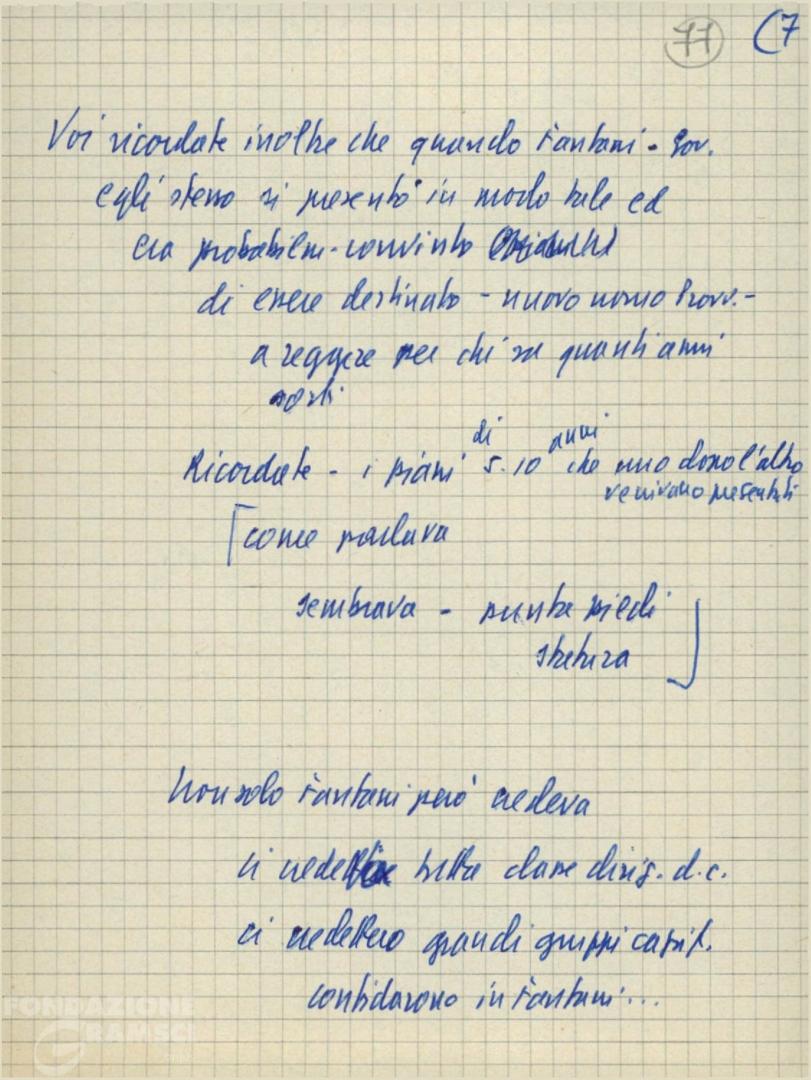 77 (7
Voi ricordate inoltre che quando Fanfani - Gov.
egli stesso si presentò in modo tale ed
era probabilm. convinto
di essere destinato - nuovo uomo Provv. -
a reggere per chi sa quanti anni
sorti
Ricordate - i piani di 5.10 anni che uno dopo l'altro
venivano presentati
[come parlava
sembrava - punta piedi
statura ]
Non solo Fanfani però credeva
ci credette tutta classe dirig. d.c.
ci credettero grandi gruppi capit.
confidarono in Fanfani...
FONDAZIONE
GRAMSCI